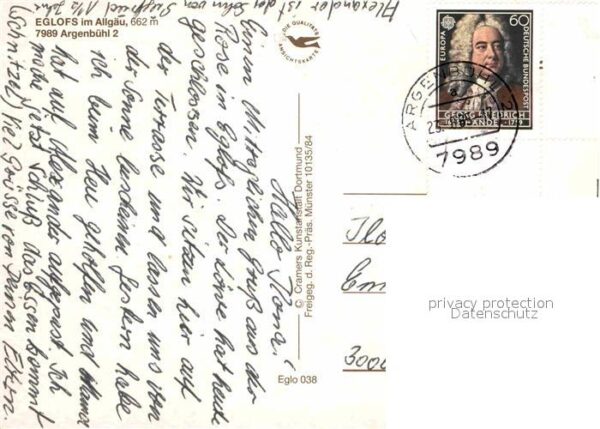 EGLOFS im Allgäu, 662 m
7989 Argenbühl 2
DIE QUALITÄTS
ANSICHTSKARTE
Alexander ist der Sohn von
Siegfried 1 1/2 Jahre
Hallo
Einen Mittagzeichen Gruß aus der
Rose in Eglofs. Der Löwe hat heute
geschlossen. Wir sitzen hier auf
der Terrasse und lassen uns von
der Sonne bescheinen. Gestern habe
ich beim Heu geholfen und Mama
hat auf Alexander aufgepasst. Ich
mache jetzt Schluß das Essen kommt
(Schnitzel) Viel Grüsse von Deinen Eltern.
© Cramers Kunstanstalt Dortmund
Freigeg. d. Reg.-Präs. Münster 10135/84
Eglo 038
EUROPA
60
DEUTSCHE BUNDESPOST
GEORG FRIEDRICH
HÄNDEL
ARGENBÜHL 2
7989
3000
privacy protection
Datenschutz